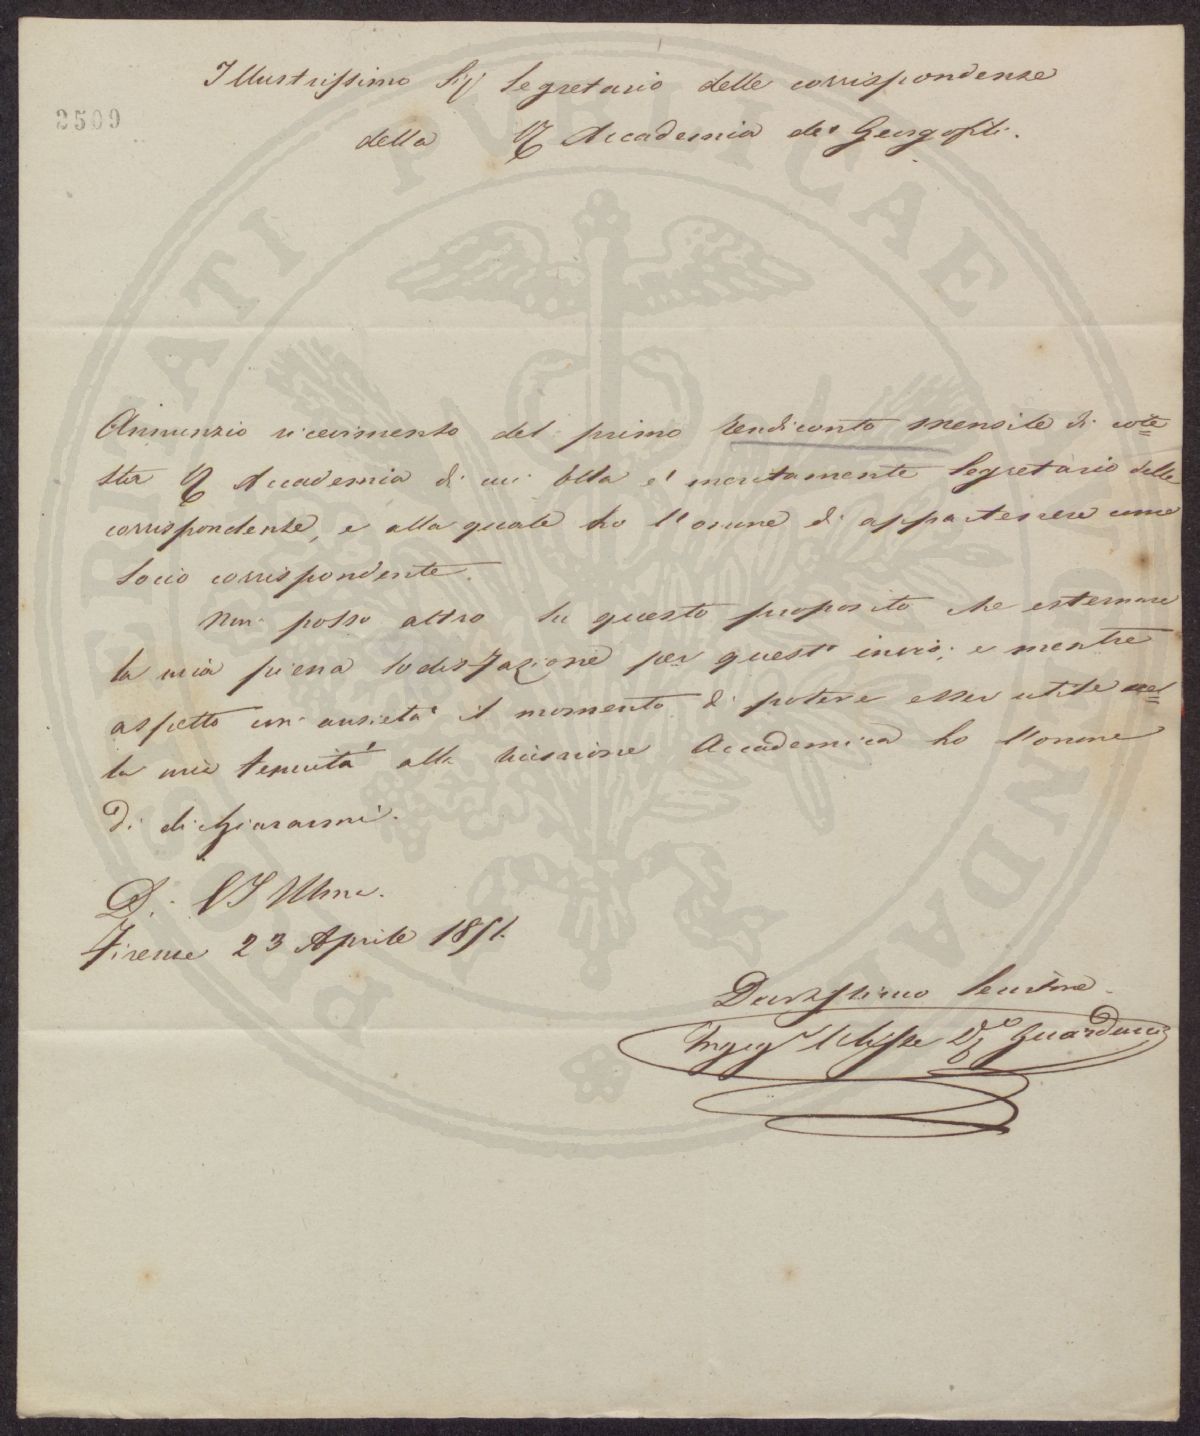 2509
Illustrissimo Sig Segretario delle corrispondenze
della R Accademia de' Georgofili.
Annunzio ricevimento del primo rendiconto mensile di cote=
sta R Accademia di cui Ella e' meritamente Segretario delle
corrispondenze, e alla quale ho l'onore di appartenere come
Socio corrispondente.
Non posso altro su questo proposito che esternare
la mia piena sodisfazione per quest' invio; e mentre
aspetto con ansietà il momento di potere esser utile nel=
la mia tenuità alla missione Accademica ho l'onore
di dichiararmi.
D. VS Illma.
Firenze 23 Aprile 1851.
Devotissimo Servitore
Ingeg Ulisse Do Guarducci
PROSPERITATI PVBLICAE AVGENDAE